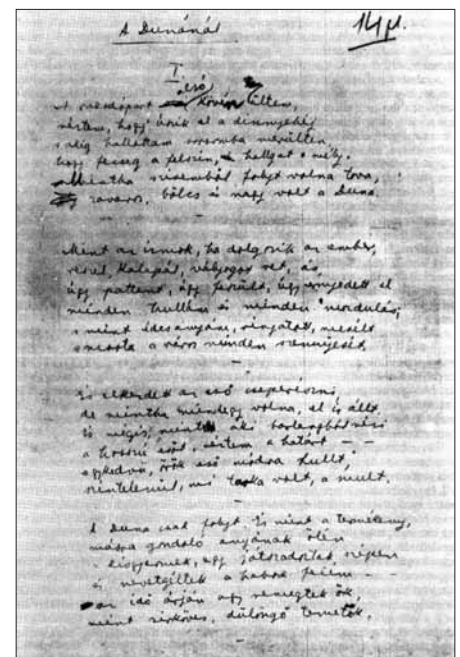 A Dunánál
14 fl.
I.
A rakodópart alsó kövén ültem,
néztem, hogy úszik el a dinnyehéj.
Alig hallottam sorsomba merülten,
hogy fecseg a felszín, hallgat a mély.
Mintha szivemből folyt volna tova,
zavaros, bölcs és nagy volt a Duna.
Mint az izmok, ha dolgozik az ember,
reszel, kalapál, vályogot vet, ás,
úgy pattant, úgy feszült, úgy ernyedett el
minden hullám és minden mozdulás;
s mint édesanyám, ringatott, mesélt
s mosta a város minden szennyesét.
És elkezdett az eső cseperészni,
de mintha mindegy volna, el is állt.
És mégis, mint aki barlangból nézi
a hosszú esőt, néztem a határt – –
egykedvü, örök eső módra hullt,
szintelenül, mi tarka volt, a mult.
A Duna csak folyt. És mint a termékeny,
másra gondoló anyának ölén
a kisgyermek, úgy játszadoztak szépen
és nevetgéltek a habok felém – –
az idő árján úgy remegtek ők,
mint sírköves, dülöngő temetők.